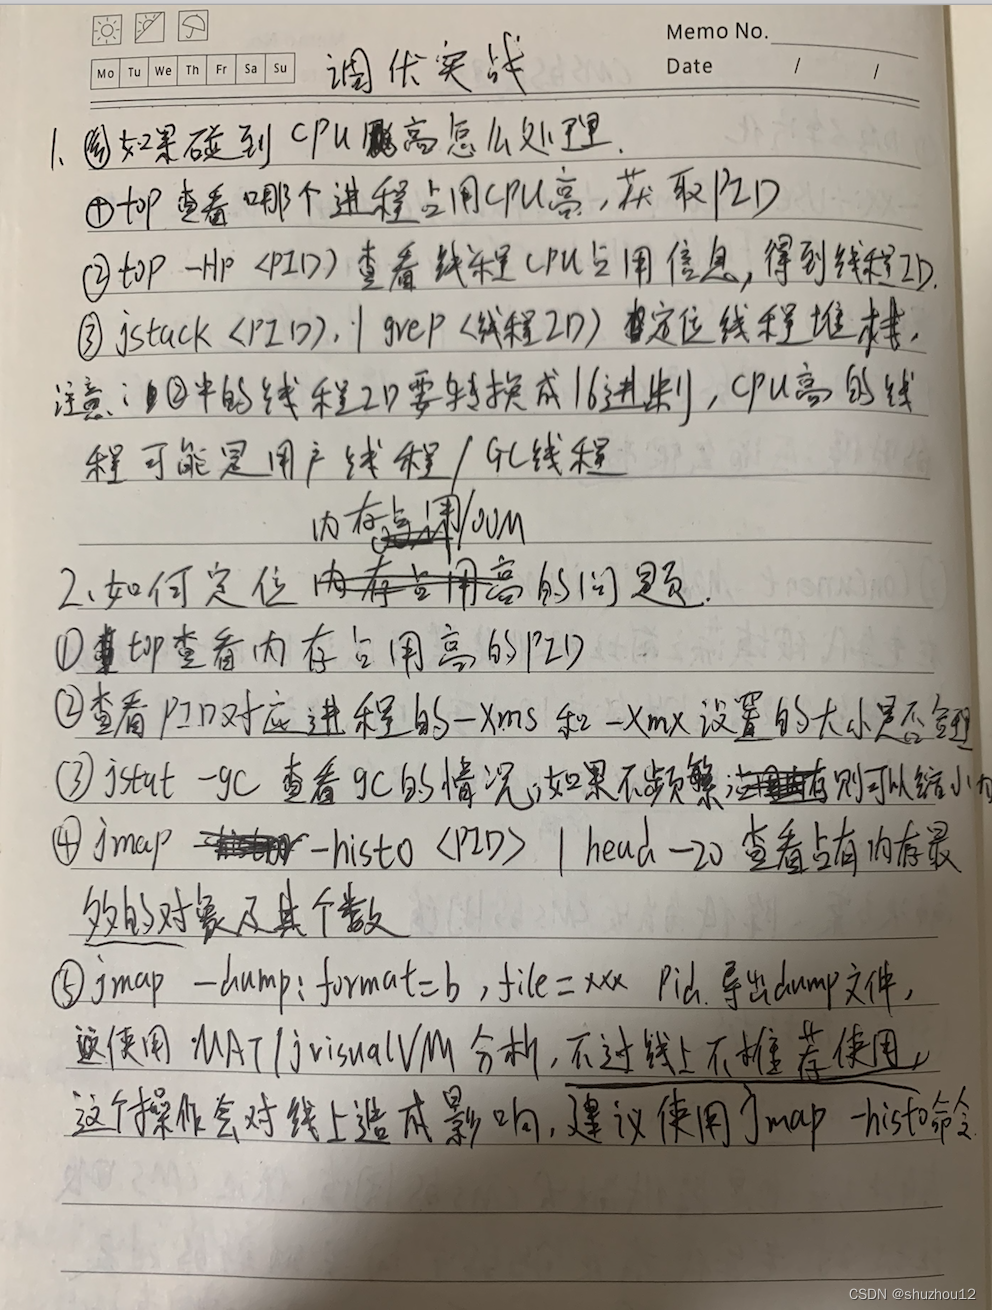 Memo No.
Mo Tu We Th Fr Sa Su
调优实战
Date / /
1、如果碰到CPU飙高怎么处理.
①top 查看哪个进程占用CPU高，获取PID
②top -Hp <PID> 查看线程CPU占用信息，得到线程ID.
③jstack <PID> | grep <线程ID> 定位线程堆栈.
注意：②中的线程ID要转换成16进制，CPU高的线
程可能是用户线程/GC线程
内存占用/OOM
2、如何定位 高的问题.
①top查看内存占用高的PID
②查看PID对应进程的-Xms 和 -Xmx 设置的大小是否合理
③jstat -gc 查看gc的情况，如果不频繁 则可以缩小
④jmap -histo <PID> | head -20 查看占有内存最
多的对象及其个数
⑤jmap -dump:format=b,file=xxx pid. 导出dump文件，
使用 MAT/jvisualVM 分析，不过线上不推荐使用，
这个操作会对线上造成影响，建议使用jmap -histo命令.
CSDN @shuzhou12